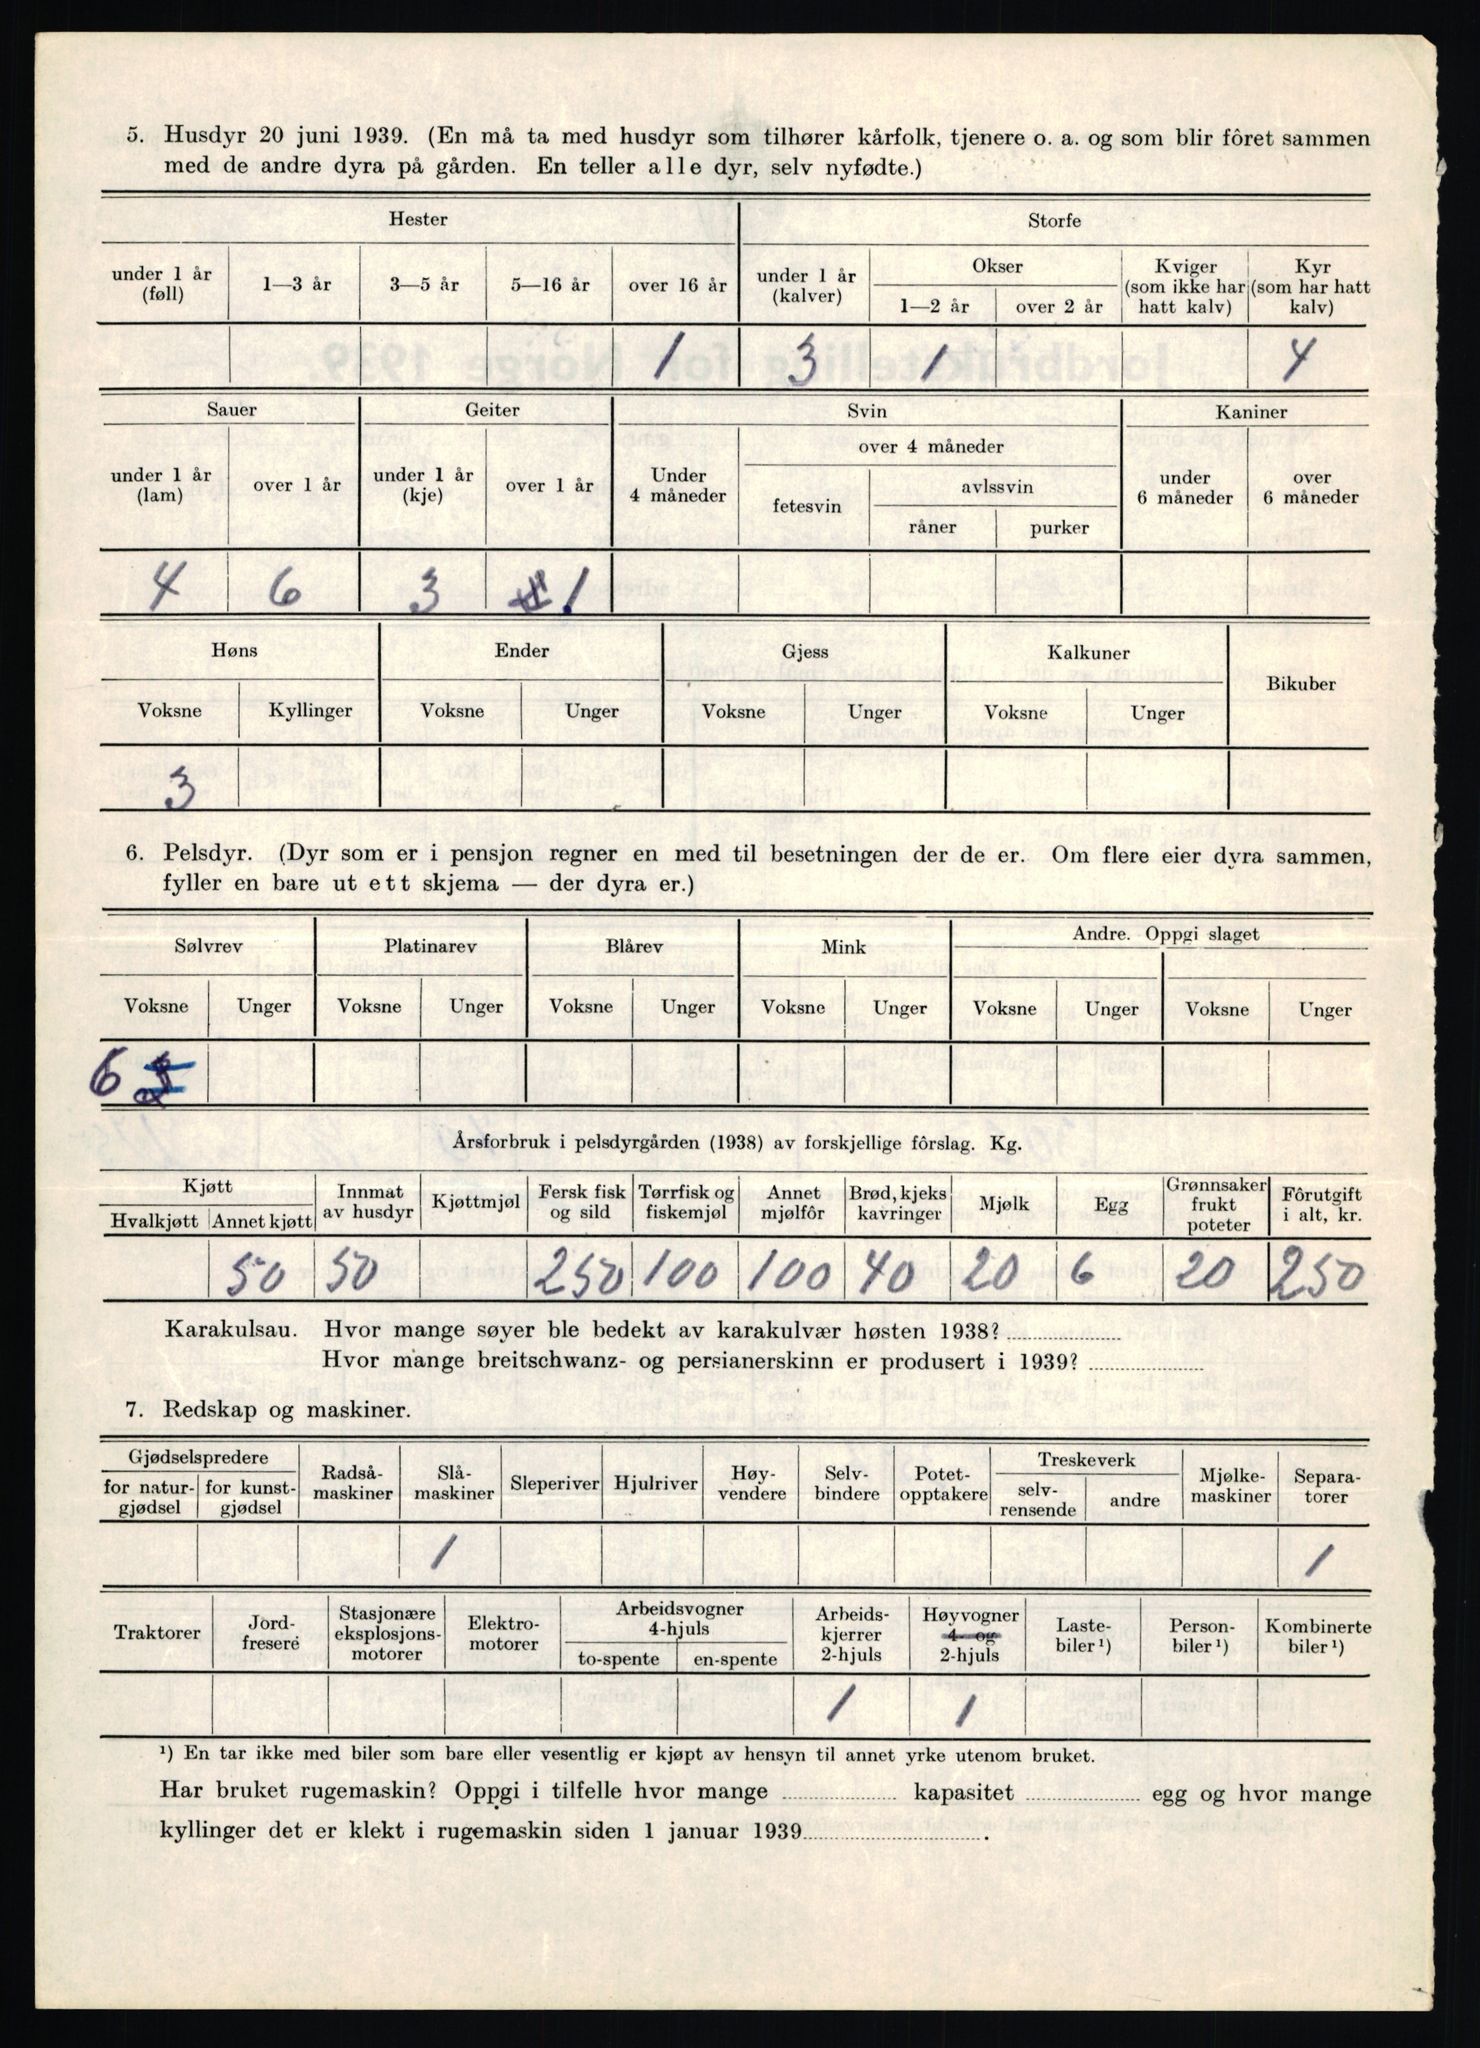 5. Husdyr 20 juni 1939. (En må ta med husdyr som tilhører kårfolk, tjenere o. a. og som blir fôret sammen
med de andre dyra på gården. En teller alle dyr, selv nyfødte.)
Hester Storfe
under 1 år (føll) 1—3 år 3—5 år 5—16 år over 16 år under 1 år (kalver) Okser 1—2 år over 2 år Kviger (som ikke har hatt kalv) Kyr (som har hatt kalv)
1 3 1 4
Sauer Geiter Svin Kaniner
under 1 år (lam) over 1 år under 1 år (kje) over 1 år Under 4 måneder over 4 måneder fetesvin avlssvin råner purker under 6 måneder over 6 måneder
4 6 3 1
Høns Ender Gjess Kalkuner Bikuber
Voksne Kyllinger Voksne Unger Voksne Unger Voksne Unger
3
6. Pelsdyr. (Dyr som er i pensjon regner en med til besetningen der de er. Om flere eier dyra sammen,
fyller en bare ut ett skjema — der dyra er.)
Sølvrev Platinarev Blårev Mink Andre. Oppgi slaget
Voksne Unger Voksne Unger Voksne Unger Voksne Unger Voksne Unger Voksne Unger
6
Årsforbruk i pelsdyrgården (1938) av forskjellige fôrslag. Kg.
Kjøtt Hvalkjøtt Annet kjøtt Innmat av husdyr Kjøttmjøl Fersk fisk og sild Tørrfisk og fiskemjøl Annet mjølfôr Brød, kjeks kavringer Mjølk Egg Grønnsaker frukt poteter Fôrutgift i alt, kr.
50 50 250 100 100 40 20 6 20 250
Karakulsau. Hvor mange søyer ble bedekt av karakulvær høsten 1938?
Hvor mange breitschwanz- og persianerskinn er produsert i 1939?
7. Redskap og maskiner.
Gjødselspredere for naturgjødsel for kunstgjødsel Radsåmaskiner Slåmaskiner Sleperiver Hjulriver Høyvendere Selvbindere Potetopptakere Treskeverk selvrensende andre Mjølkemaskiner Separatorer
1 1
Traktorer Jordfresere Stasjonære eksplosjonsmotorer Elektromotorer Arbeidsvogner 4-hjuls to-spente en-spente Arbeidskjerrer 2-hjuls Høyvogner 4- og 2-hjuls Lastebiler ¹) Personbiler ¹) Kombinerte biler ¹)
1 1
¹) En tar ikke med biler som bare eller vesentlig er kjøpt av hensyn til annet yrke utenom bruket.
Har bruket rugemaskin? Oppgi i tilfelle hvor mange kapasitet egg og hvor mange
kyllinger det er klekt i rugemaskin siden 1 januar 1939 .